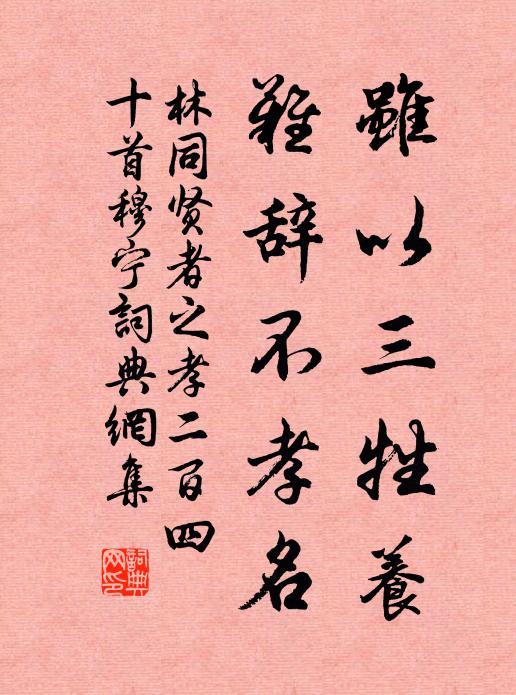 雖以三牲養
難辞不孝名
林同贤者之孝二百四
十首穆宁詞典網集
詞典
网印